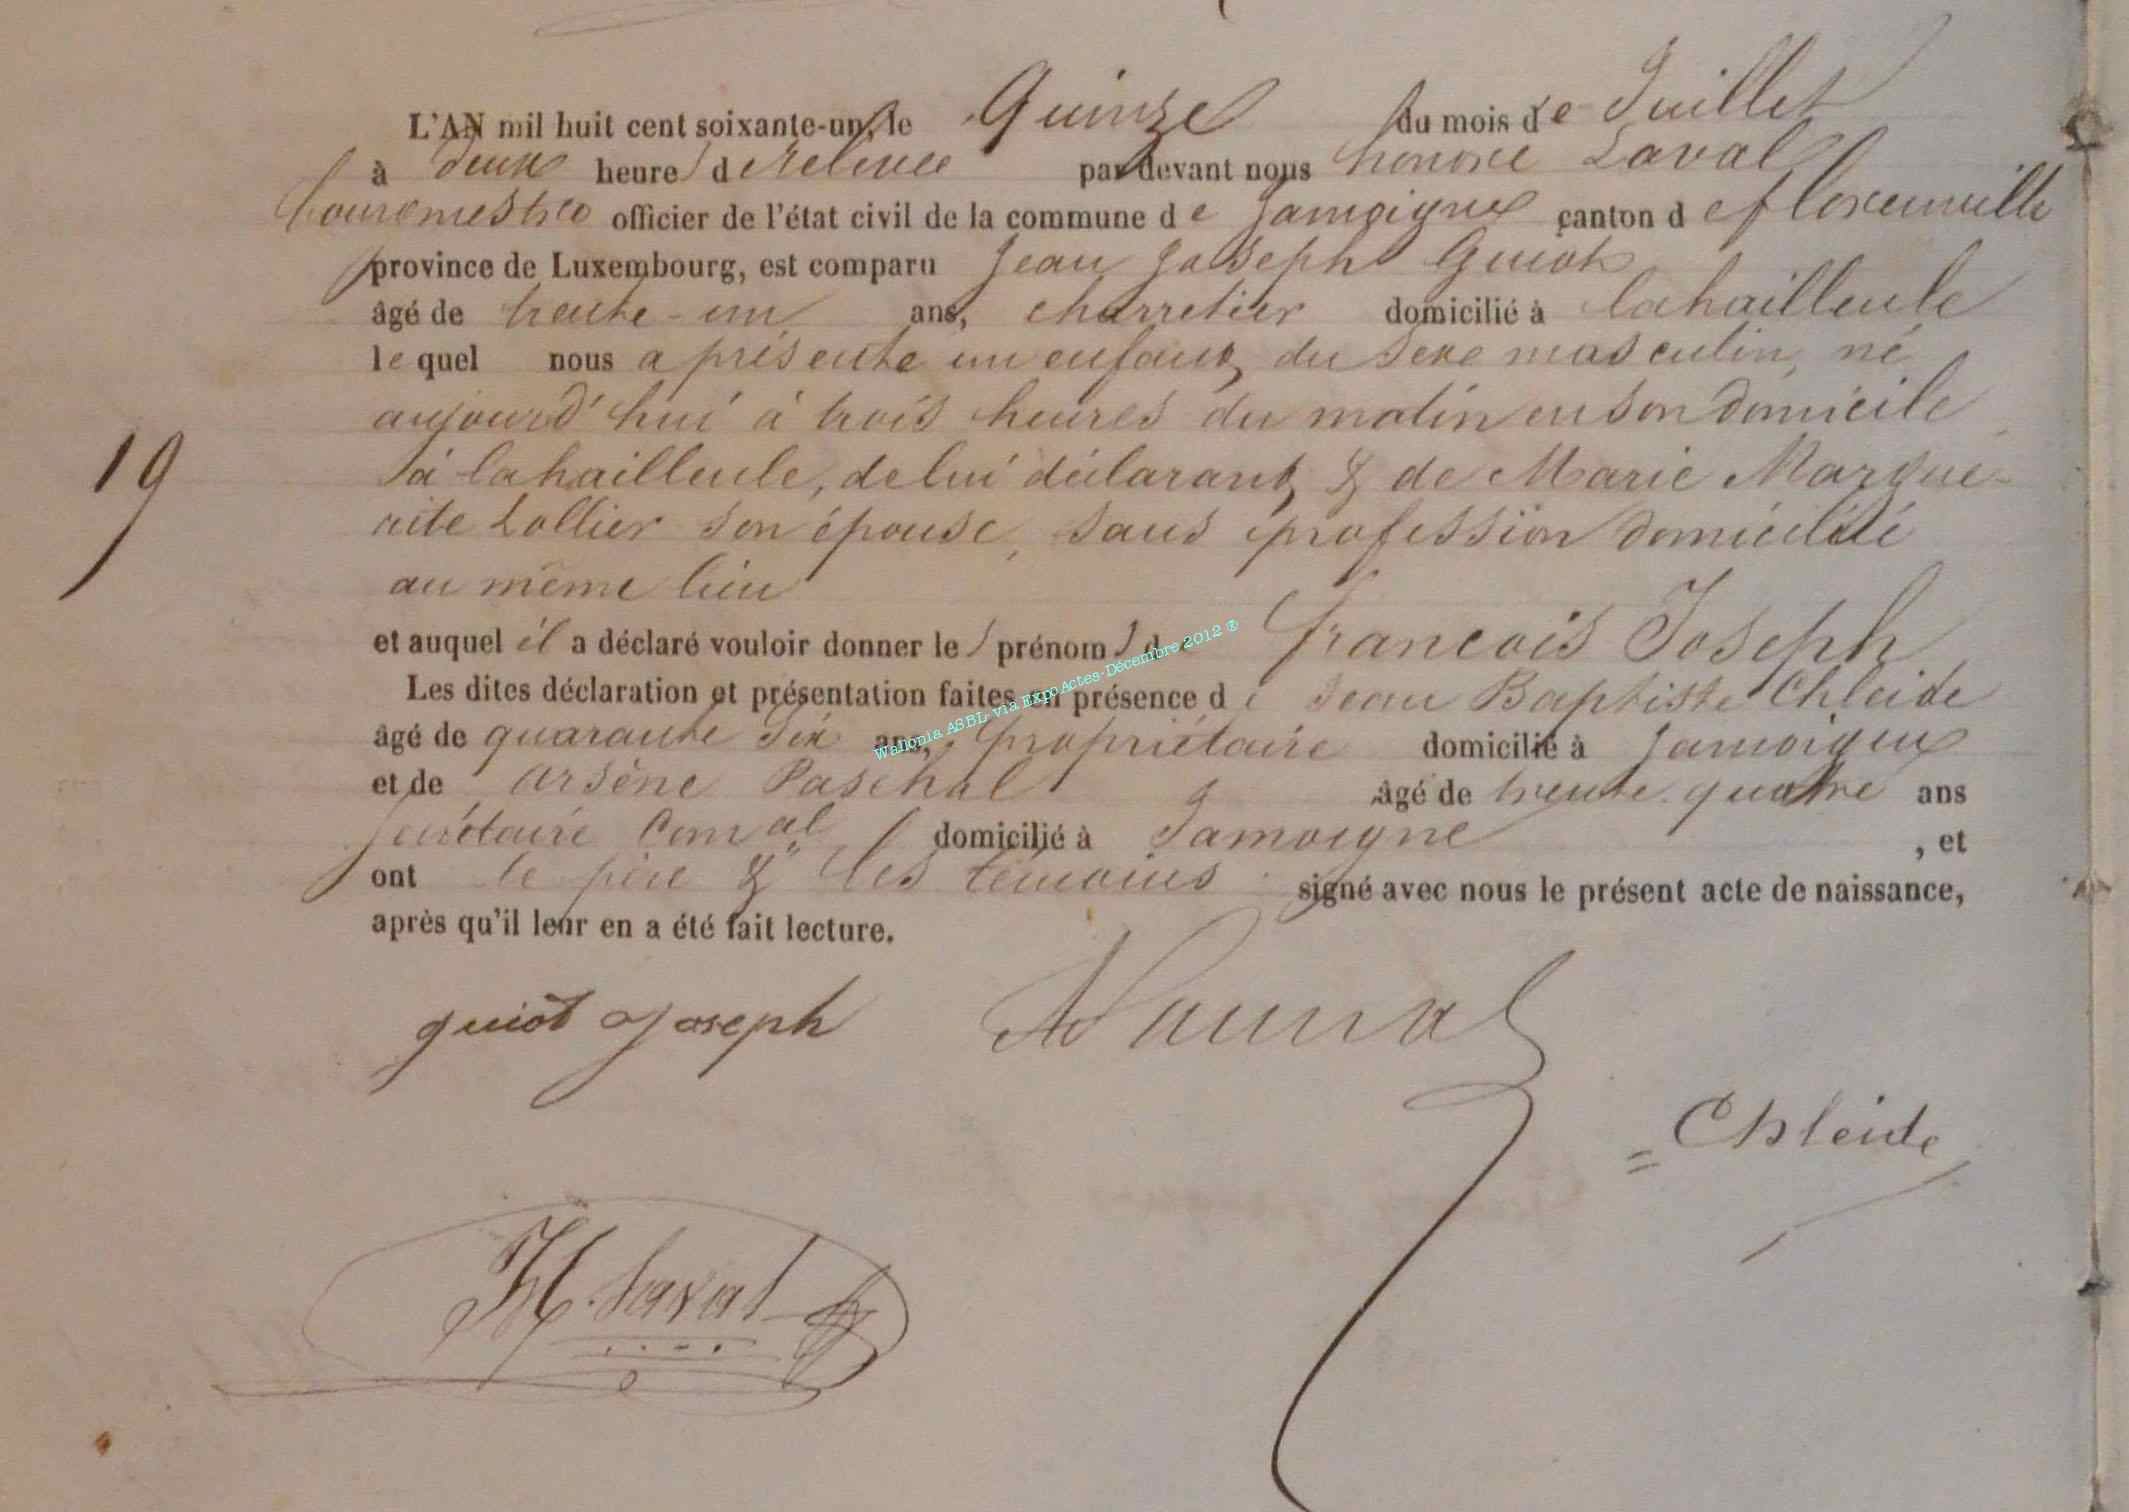 L'AN mil huit cent soixante-un, le Quinze du mois de Juillet
à deux heures de relevée par devant nous honoré Laval
bourgmestre officier de l'état civil de la commune de Jamoigne canton de florenville
province de Luxembourg, est comparu Jean Joseph Guiot
âgé de trente-un ans, charretier domicilié à lahailleule
lequel nous a présenté un enfant, du sexe masculin, né
aujourd'hui à trois heures du matin en son domicile
à lahailleule, de lui déclarant, & de Marie Margue-
19
rite Lollier son épouse, sans profession domiciliée
au même lieu
et auquel il a déclaré vouloir donner les prénoms de francois Joseph
Les dites déclaration et présentation faites en présence de Jean Baptiste Chleide
Wallonia ASBL via ExpoActes-Décembre 2012 ®
âgé de quarante six ans, propriétaire domicilié à Jamoigne
et de arsène Paschal âgé de trente-quatre ans
secrétaire Comal domicilié à Jamoigne, et
ont le père & les témoins signé avec nous le présent acte de naissance,
après qu'il leur en a été fait lecture.
guiot Joseph
Chleide
H. Laval